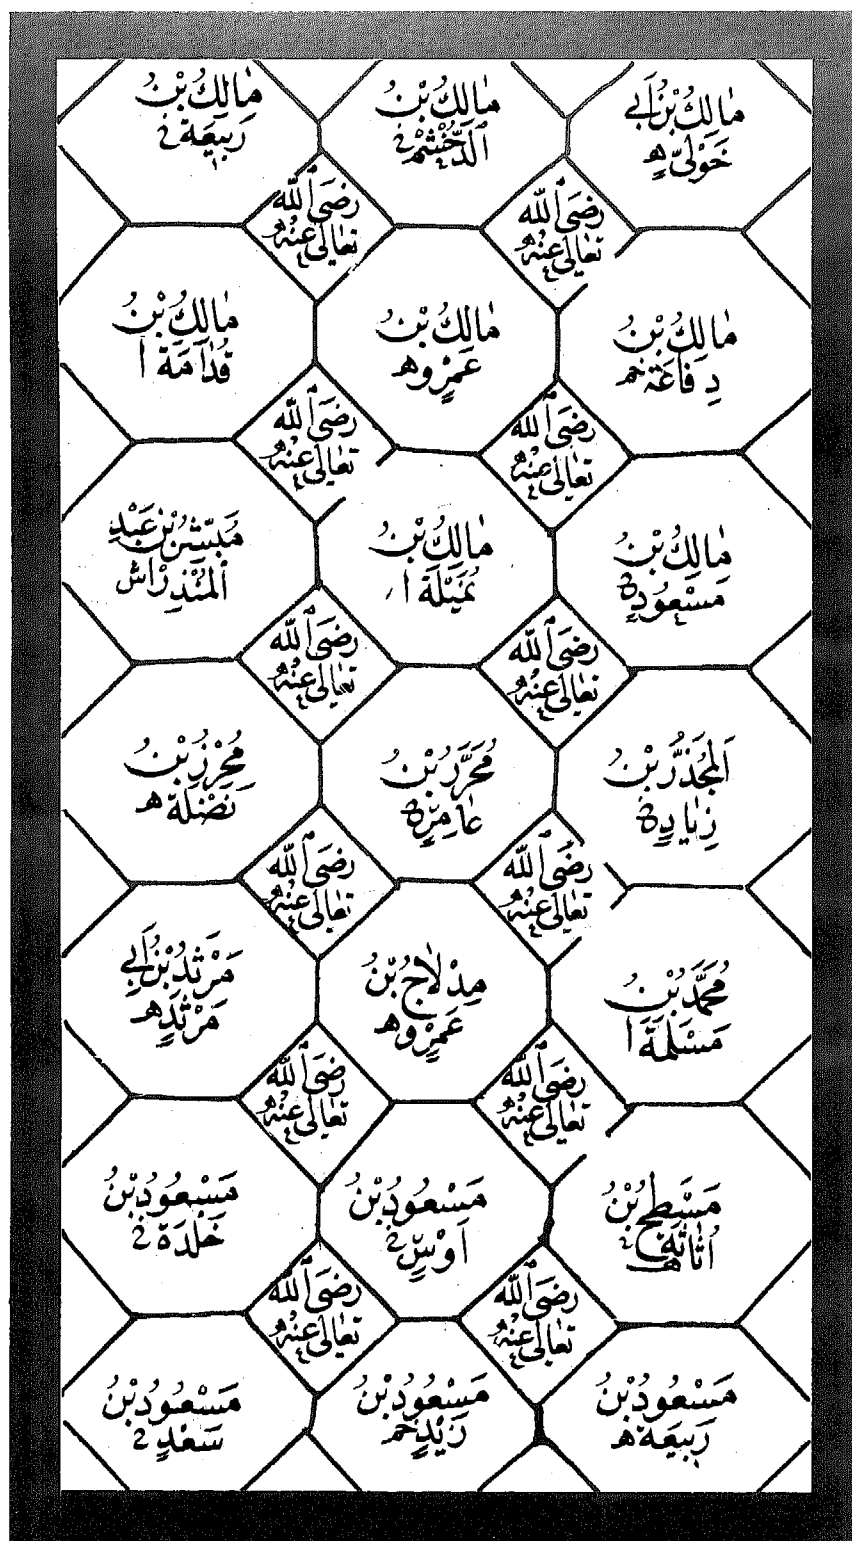 مَالِكُ بْنُ اَبِي
خَوْلِيٍّ ھ
مَالِكُ بْنُ
الدُّخْشُمِ خ
مَالِكُ بْنُ
رَبِيعَةَ خ
رَضِيَ اللّٰه
تَعَالٰى عَنْهُ
رَضِيَ اللّٰه
تَعَالٰى عَنْهُ
مَالِكُ بْنُ
رِفَاعَةَ خم
مَالِكُ بْنُ
عَمْرٍو ھ
مَالِكُ بْنُ
قُدَامَةَ ا
رَضِيَ اللّٰه
تَعَالٰى عَنْهُ
رَضِيَ اللّٰه
تَعَالٰى عَنْهُ
مَالِكُ بْنُ
مَسْعُودٍ
مَالِكُ بْنُ
نُمَيْلَةَ ا
مُبَشِّرُ بْنُ عَبْدِ
الْمُنْذِرِ اش
رَضِيَ اللّٰه
تَعَالٰى عَنْهُ
رَضِيَ اللّٰه
تَعَالٰى عَنْهُ
اَلْمُجَذَّرُ بْنُ
زِيَادٍ
مُحَرَّرُ بْنُ
عَامِرٍ
مُحْرِزُ بْنُ
نَضْلَةَ ھ
رَضِيَ اللّٰه
تَعَالٰى عَنْهُ
رَضِيَ اللّٰه
تَعَالٰى عَنْهُ
مُحَمَّدُ بْنُ
مَسْلَمَةَ ا
مِدْلَاجُ بْنُ
عَمْرٍو ھ
مَرْثَدُ بْنُ اَبِي
مَرْثَدٍ ھ
رَضِيَ اللّٰه
تَعَالٰى عَنْهُ
رَضِيَ اللّٰه
تَعَالٰى عَنْهُ
مِسْطَحُ بْنُ
اُثَاثَةَ ھ
مَسْعُودُ بْنُ
اَوْسٍ خ
مَسْعُودُ بْنُ
خَلْدَةَ خ
رَضِيَ اللّٰه
تَعَالٰى عَنْهُ
رَضِيَ اللّٰه
تَعَالٰى عَنْهُ
مَسْعُودُ بْنُ
رَبِيعَةَ ھ
مَسْعُودُ بْنُ
زَيْدٍ خم
مَسْعُودُ بْنُ
سَعْدٍ خ